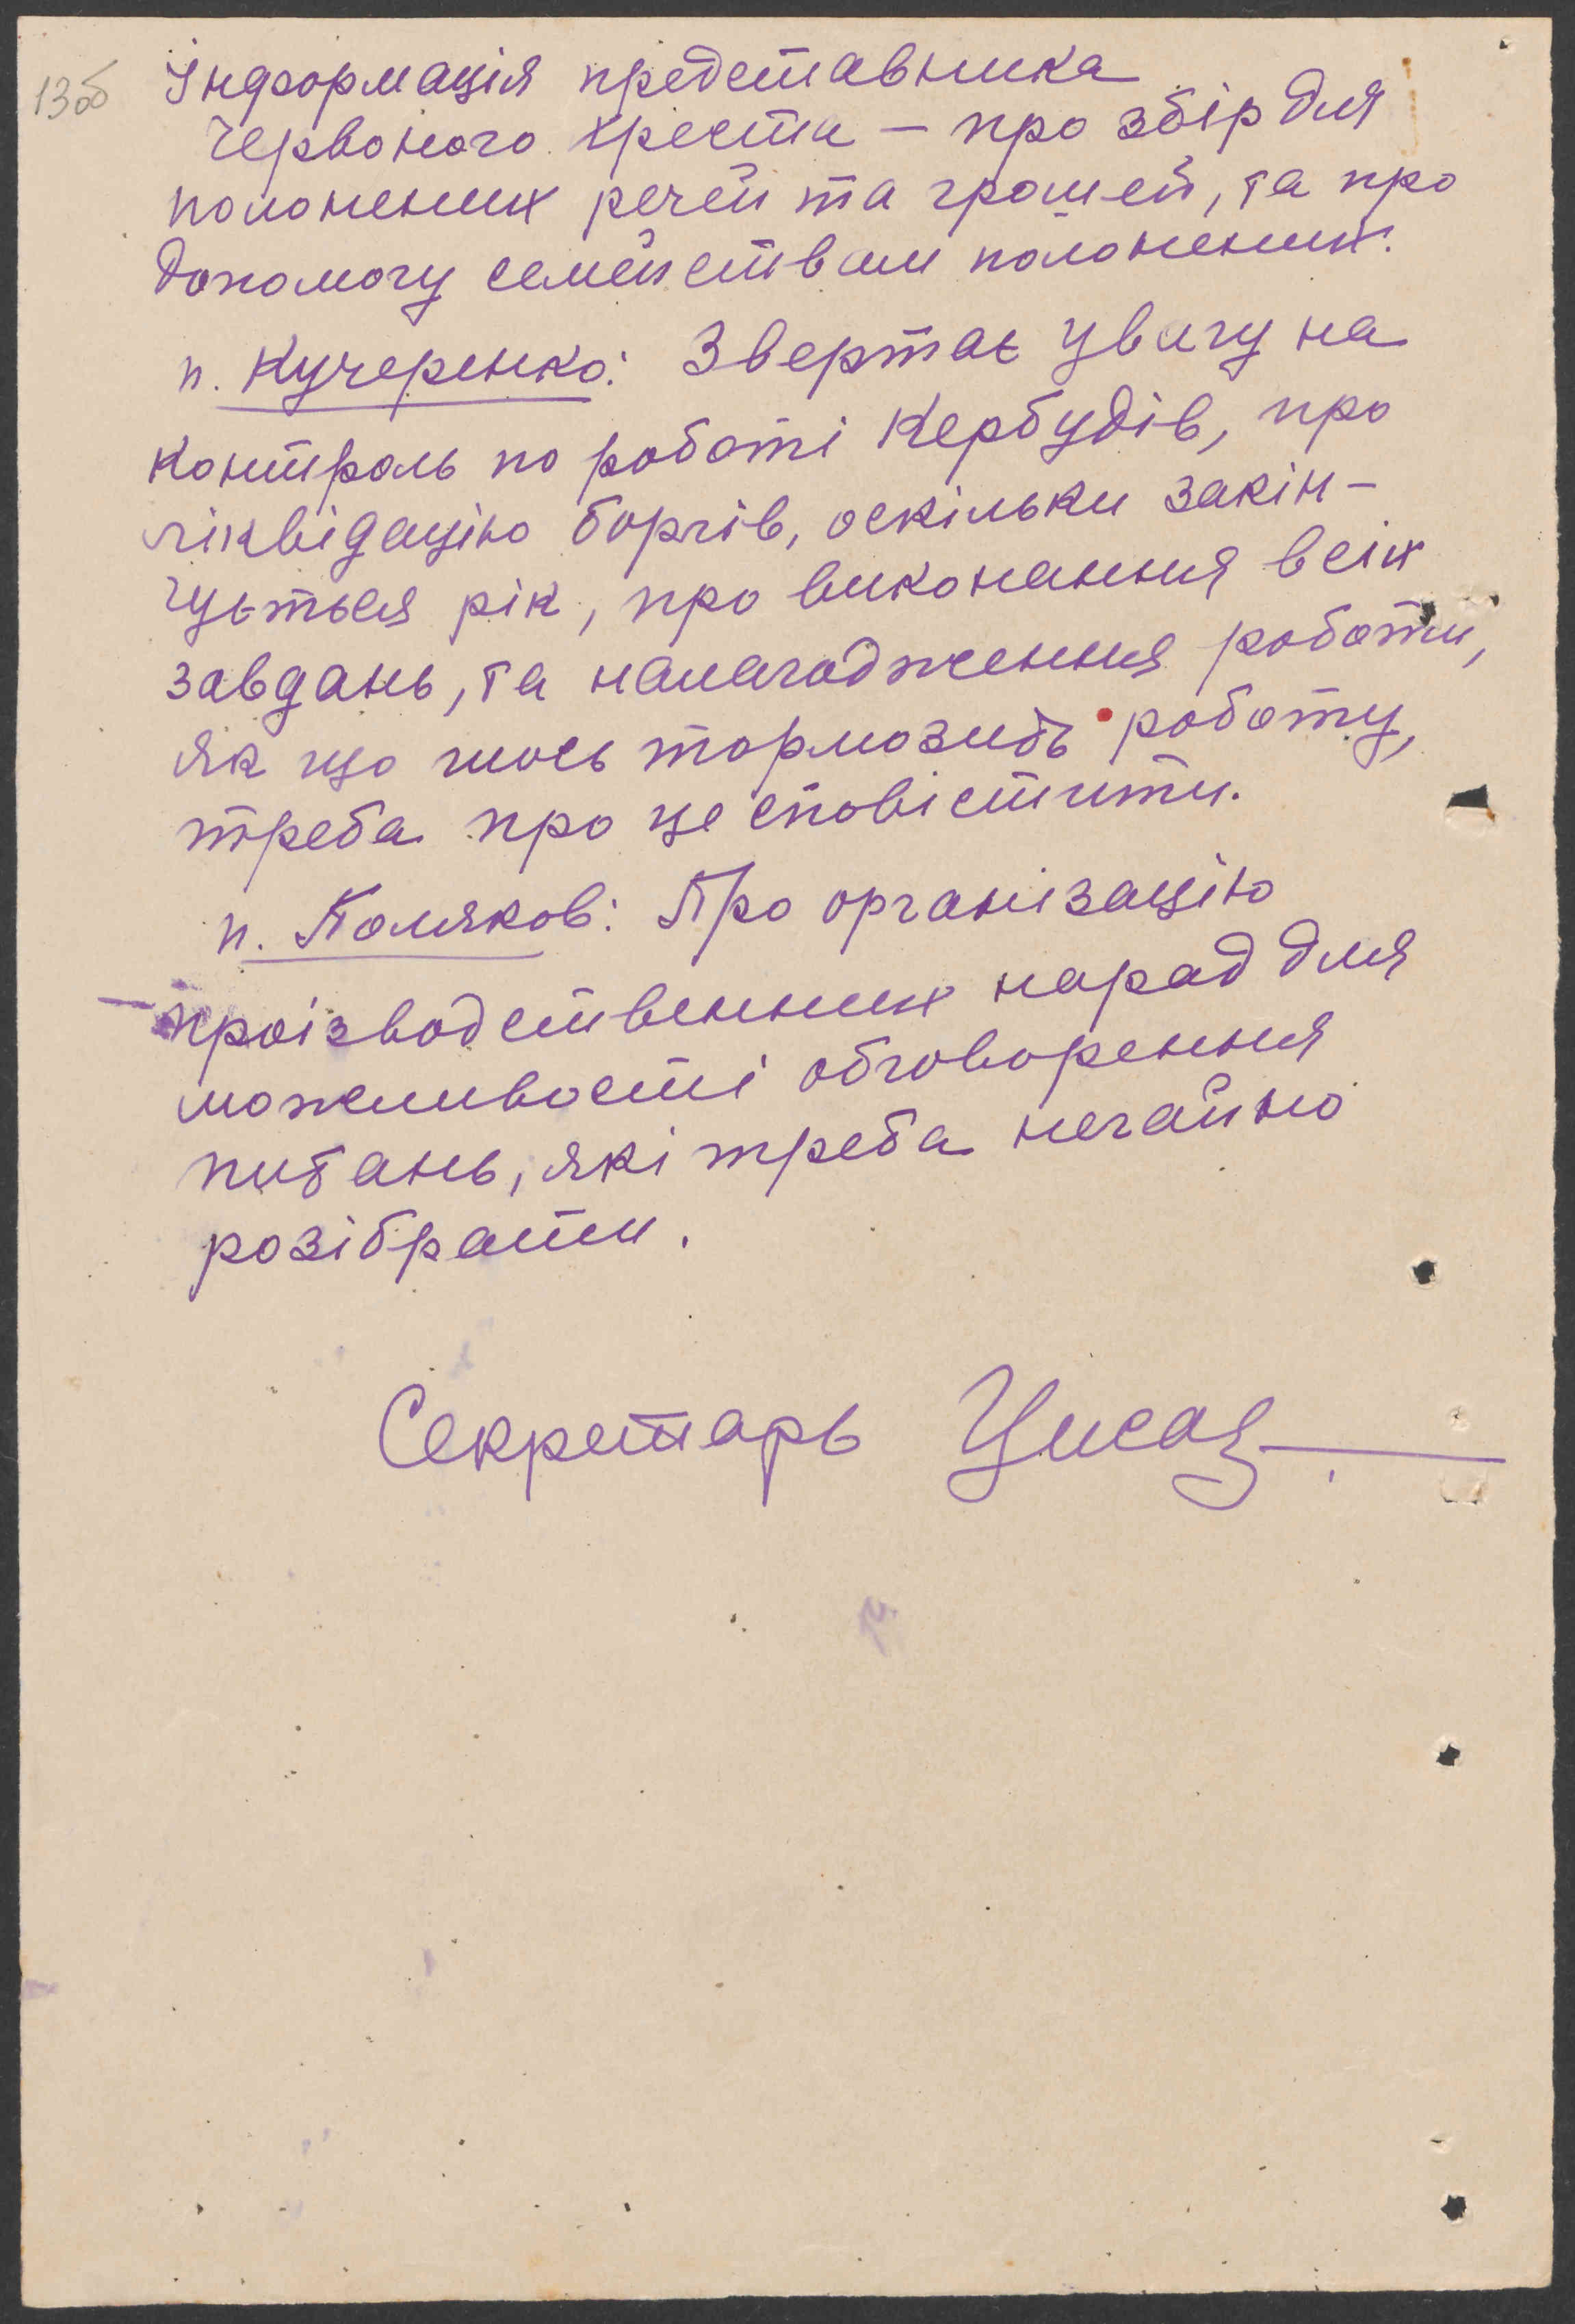 13об
Інформація представника
Червоного Хреста – про збір для
полонених речей та грошей, та про
допомогу семействам полонених.
п. Кучеренко: Звертає увагу на
контроль по роботі Кербудів, про
ліквідацію боргів, оскільки закін-
чується рік, про виконання всіх
завдань, та налагодження роботи,
як що щось тормозить роботу,
треба про це сповістити.
п. Поляков: Про організацію
проізводственних нарад для
можливості обговорення
питань, які треба негайно
розібрати.
Секретарь